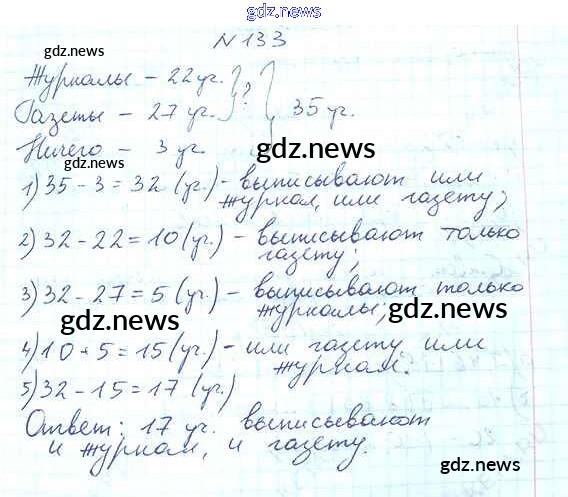 gdz.news
N 133
gdz.news
Журналы – 22 уч. } ?
Газеты – 27 уч. } 35 уч.
Ничего – 3 уч.
gdz.news
1) 35 - 3 = 32 (уч.) - выписывают или
журнал, или газету;
gdz.news
2) 32 - 22 = 10 (уч.) - выписывают только
газету;
3) 32 - 27 = 5 (уч.) - выписывают только
журналы;
gdz.news
gdz.news
4) 10 + 5 = 15 (уч.) - или газету или
журнал.
5) 32 - 15 = 17 (уч.)
gdz.news
Ответ: 17 уч. выписывают
и журнал, и газету.
gdz.news
gdz.news